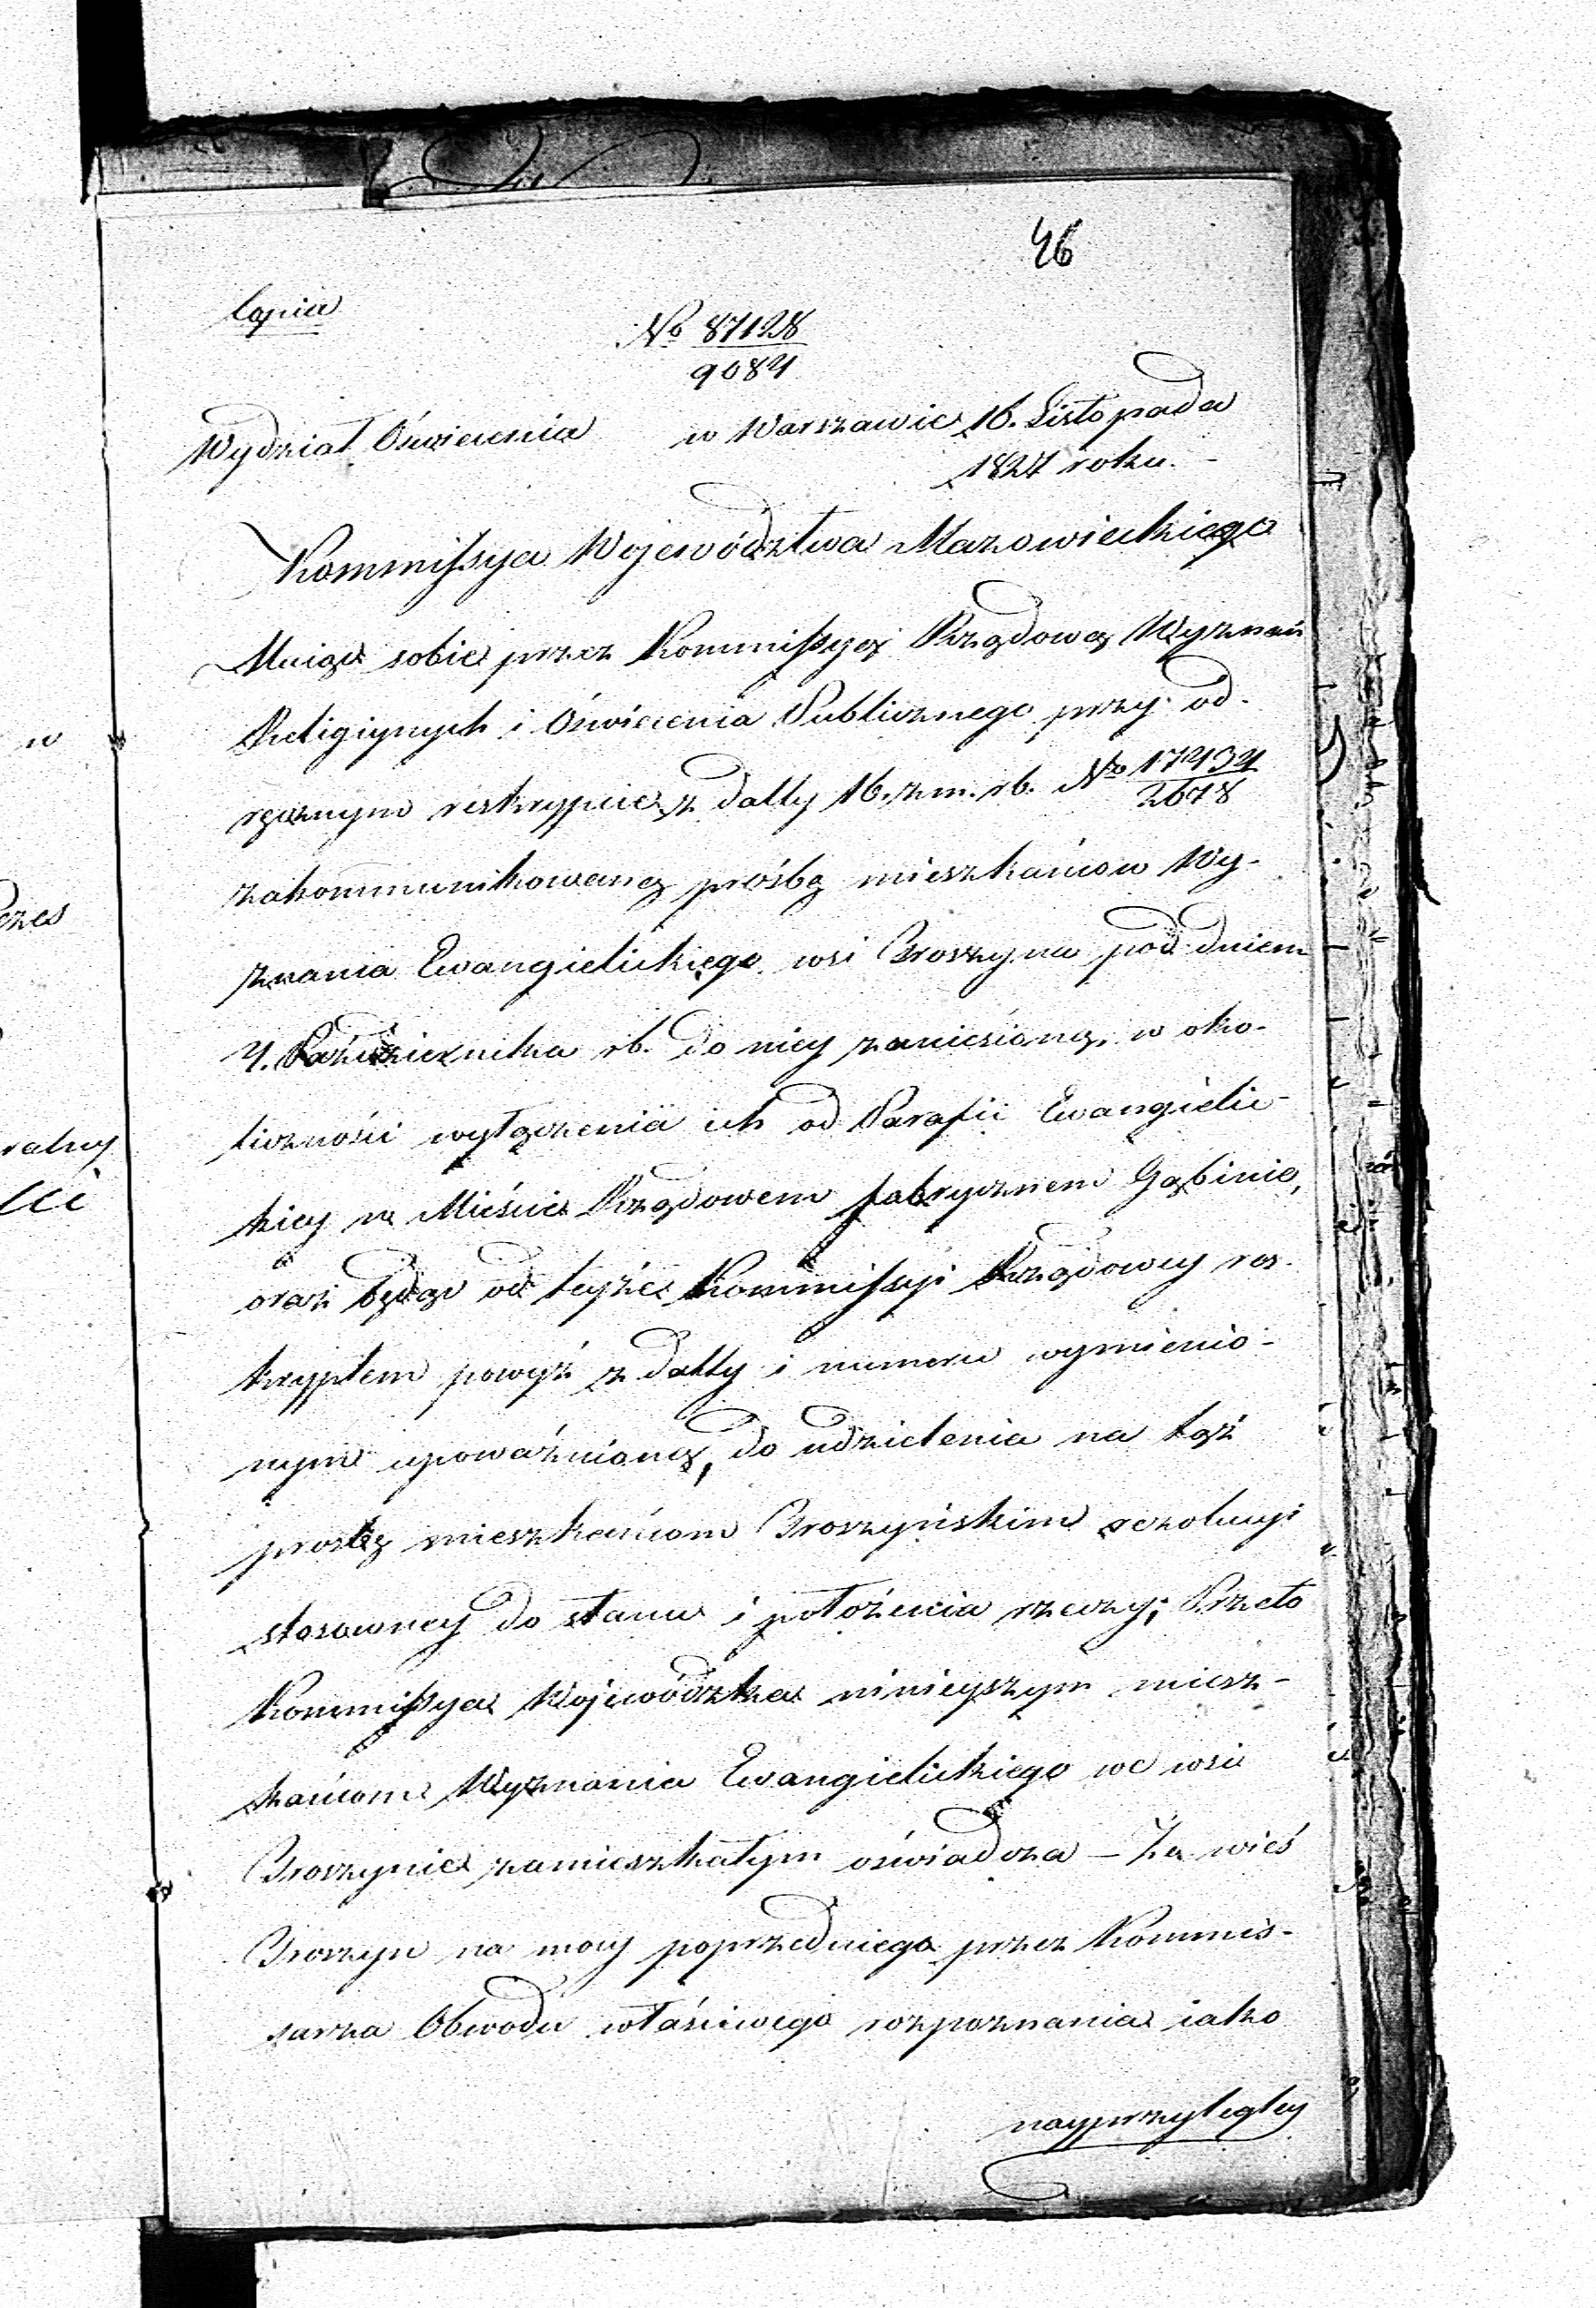 46
Copia
No 87128
9084
Wydział Oświecenia w Warszawie 16. Listopada
1827 roku. -
Kommissya Województwa Mazowieckiego
Maiąc sobie przez Kommissyą Rządową Wyznań
Religiynych i Oświecenia Publicznego przy od-
ręcznym reskrypcie z datty 16. z. m. rb. No 17434
2678
zakommunikowaną prośbę mieszkańcow Wy-
znania Ewangielickiego wsi Troszyna pod dniem
4. Października rb. do niey zaniesioną, w oko-
liczności wyłączenia ich od Parafii Ewangielic-
kiey w Mieście Rządowem fabrycznem Gąbinie,
oraz będąc od teyże Kommissyi Rządowey res-
kryptem powyż z datty i numeru wymienio-
nym upoważnioną, do udzielenia na tąż
prosbę mieszkańcom Troszyńskim rezolucyi
stosowney do stanu i położenia rzeczy; Przeto
Kommissya Wojewódzka ninieyszym miesz-
kańcom Wyznania Ewangielickiego we wsi
Troszynie zamieszkałym oświadcza - Że wieś
Troszyn na mocy poprzedniego przez Kommis-
sarza Obwodu właściwego rozpoznania iako
nayprzyległey
w
ralny